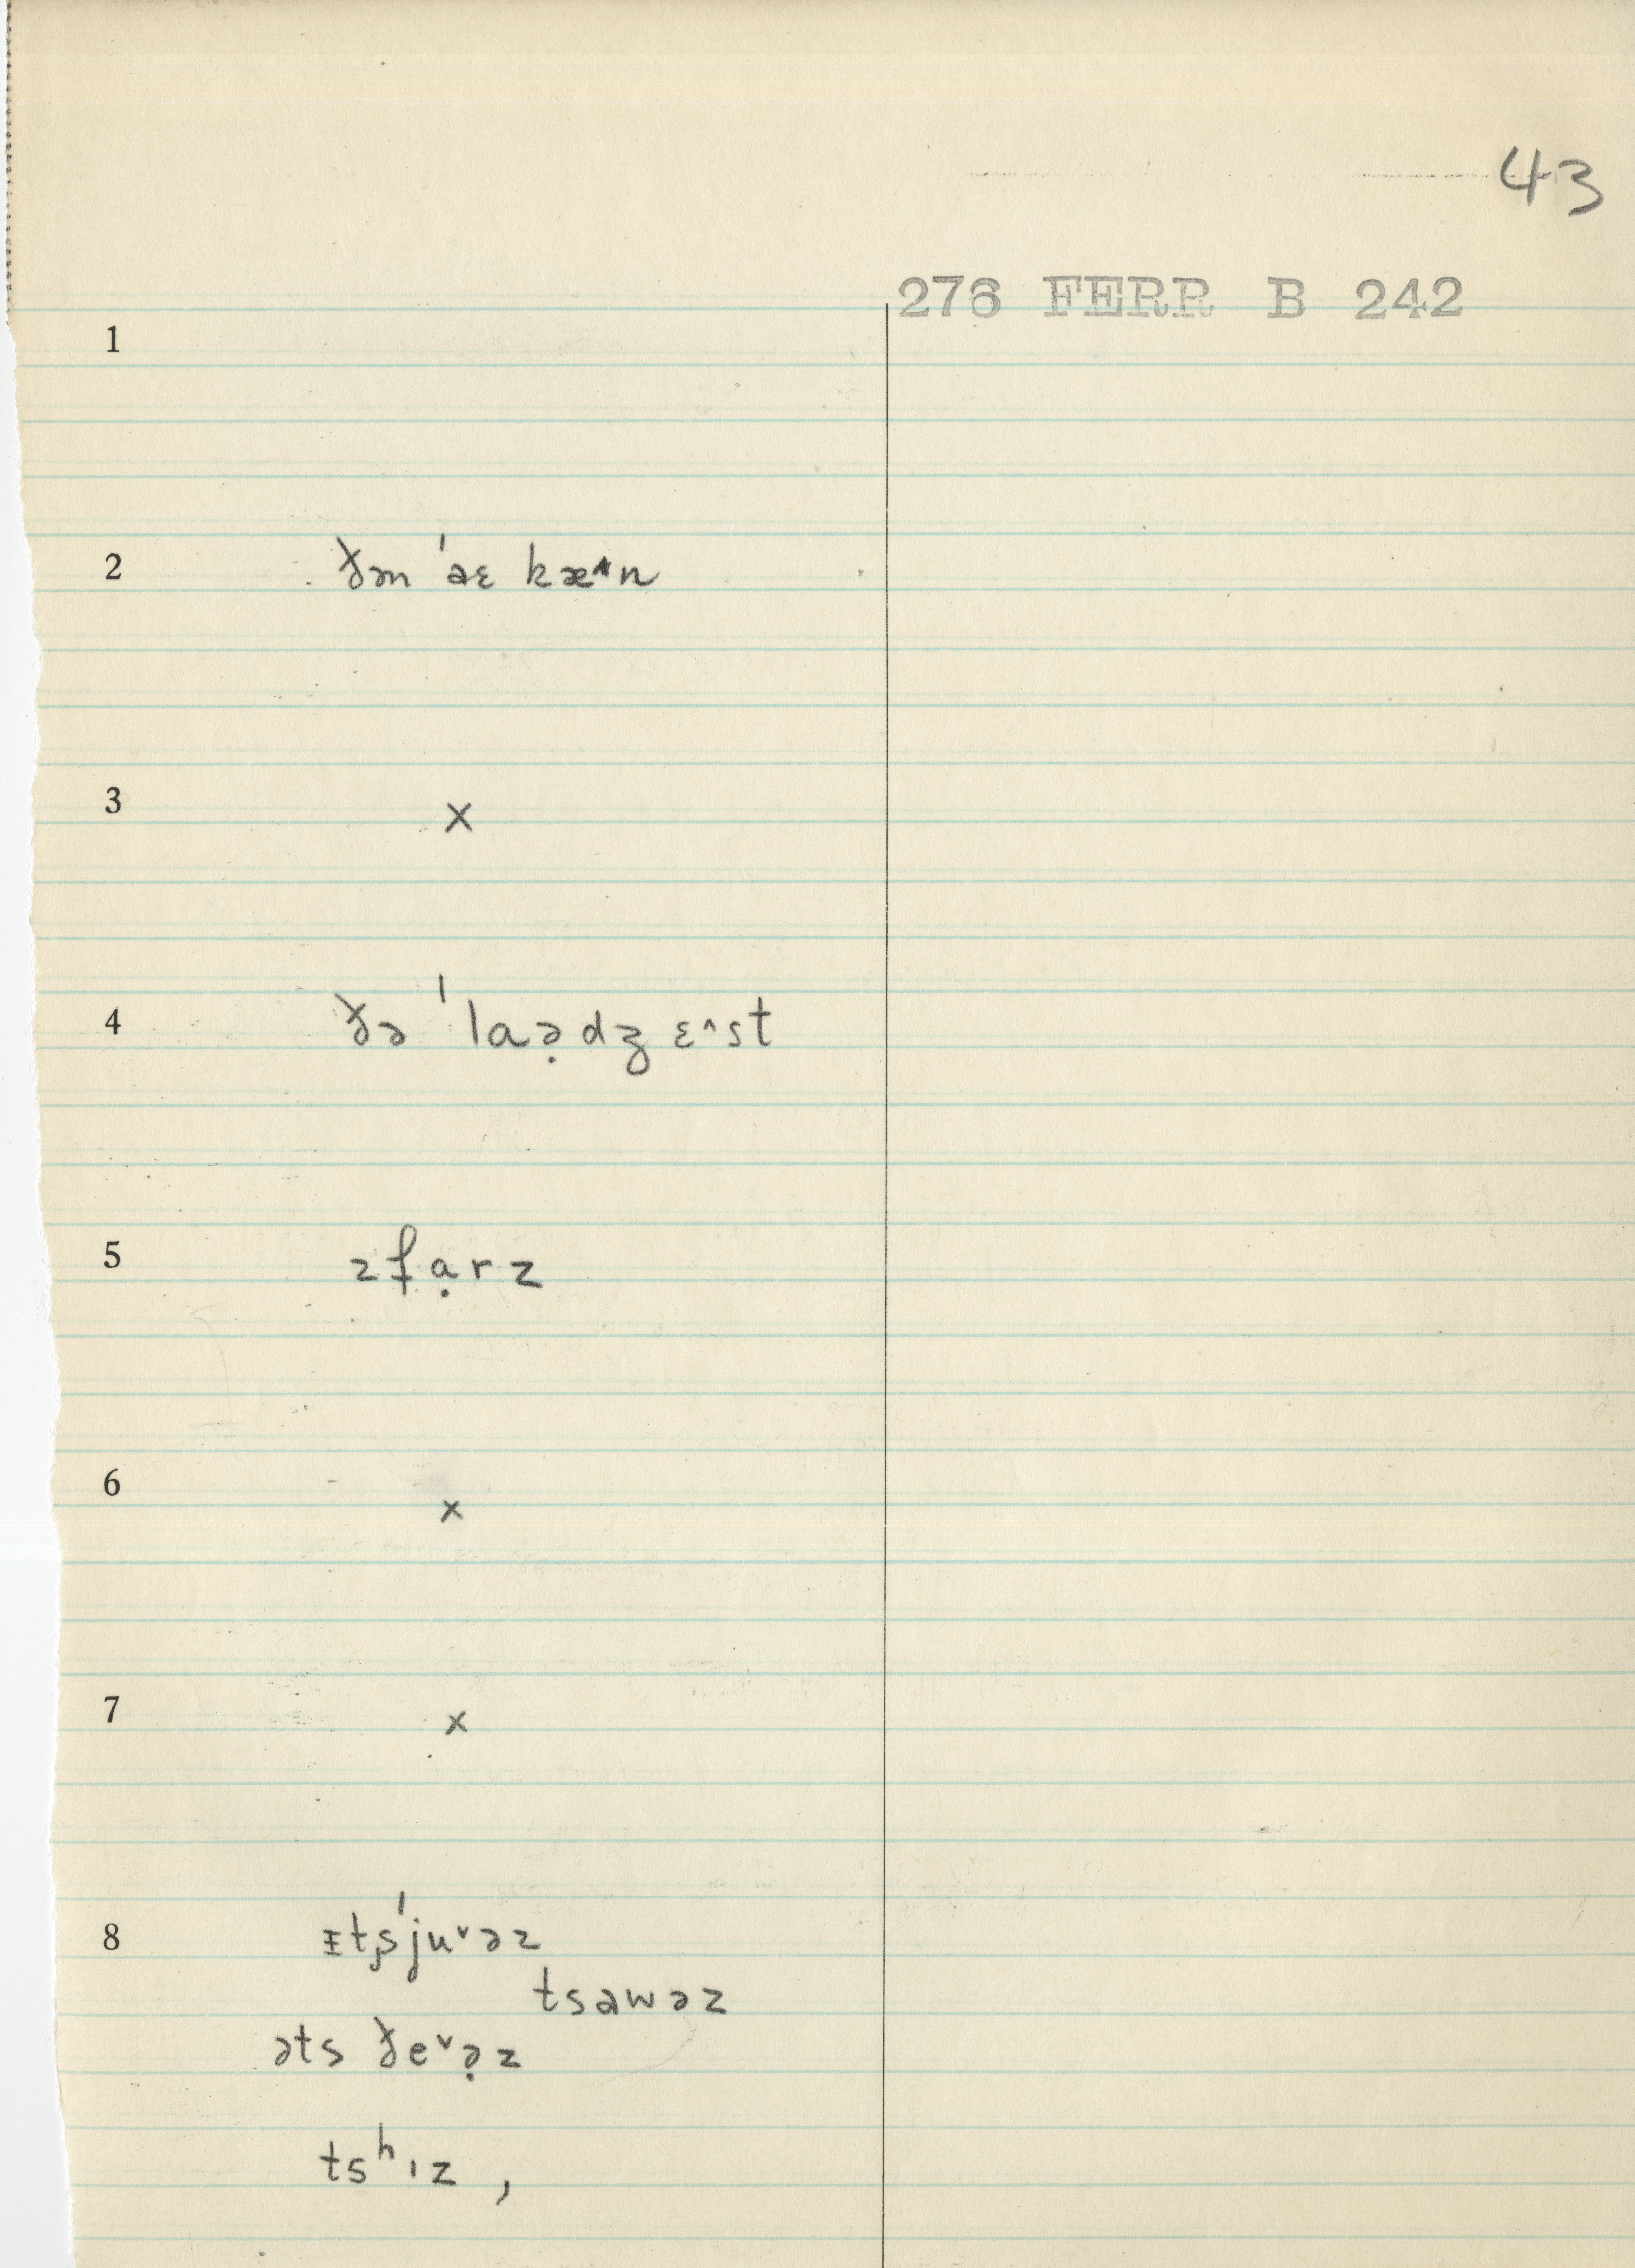 43
276 FERR B 242
1
2 ðən ˈaɛ kæ^n
3 x
4 ðə ˈlaə̣dʒ ɛ^st
5 zfạrz
6 x
7 x
8 ɪtṣˈjuᵛəz
tsawəz
əts ðeᵛə̣z
tsʰɪz ,